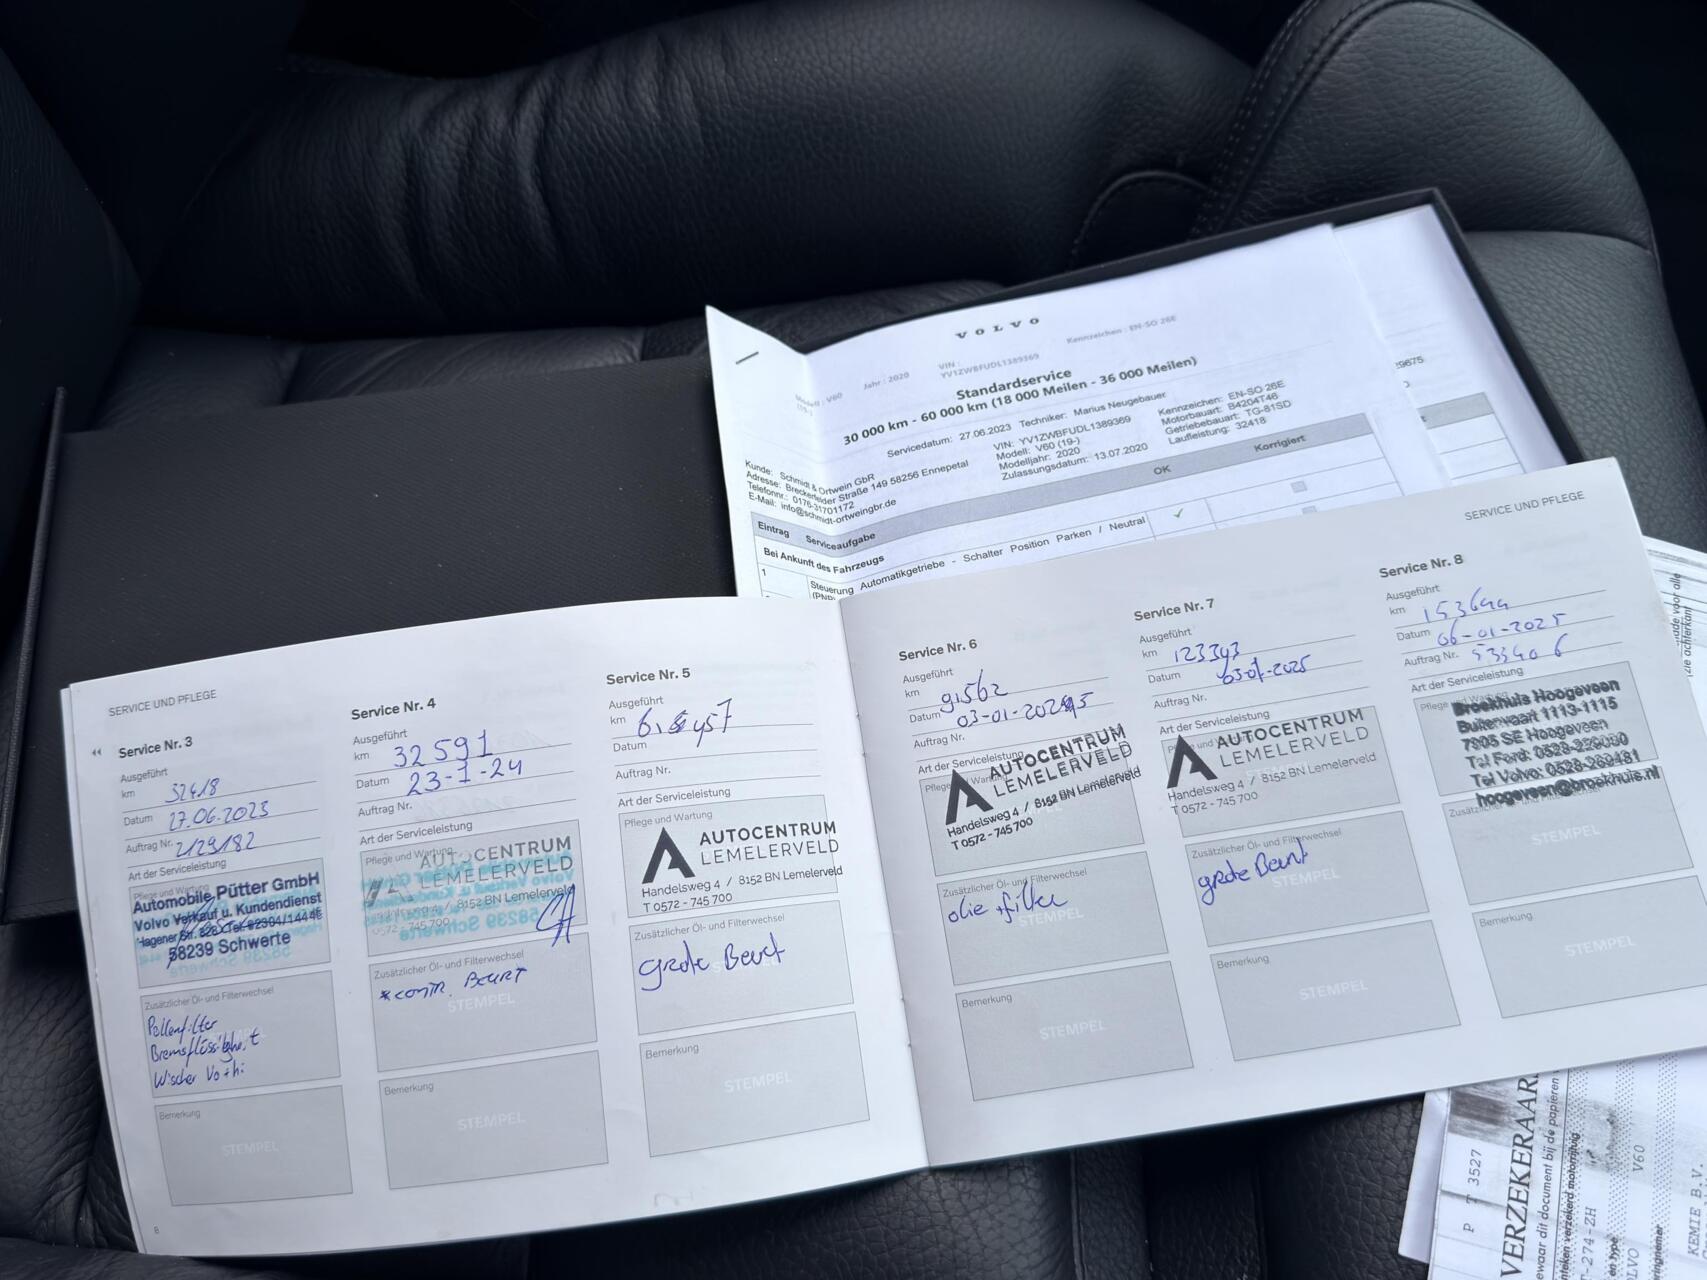 VOLVO
Modell : V60
(19-)
Jahr : 2020
VIN :
YV1ZWBFUDL1389369
Kennzeichen : EN-SO 26E
Standardservice
30 000 km - 60 000 km (18 000 Meilen - 36 000 Meilen)
Servicedatum: 27.06.2023 Techniker: Marius Neugebauer
Kunde: Schmidt & Ortwein GbR
Adresse: Breckerfelder Straße 149 58256 Ennepetal
Telefonnr.: 0176-31701172
E-Mail: info@schmidt-ortweingbr.de
VIN: YV1ZWBFUDL1389369
Modell: V60 (19-)
Modelljahr: 2020
Zulassungsdatum: 13.07.2020
Kennzeichen: EN-SO 26E
Motorbauart: B4204T46
Getriebebauart: TG-81SD
Laufleistung: 32418
Eintrag Serviceaufgabe OK Korrigiert
Bei Ankunft des Fahrzeugs
1 Steuerung Automatikgetriebe - Schalter Position Parken / Neutral
SERVICE UND PFLEGE
Service Nr. 3
Ausgeführt
km 32418
Datum 27.06.2023
Auftrag Nr. 2129182
Art der Serviceleistung
Pflege und Wartung
Automobile Pütter GmbH
Volvo Verkauf u. Kundendienst
58239 Schwerte
Zusätzlicher Öl- und Filterwechsel
Pollenfilter
Bremsflüssigkeit
Wischer
Bemerkung
STEMPEL
8
Service Nr. 4
Ausgeführt
km 32591
Datum 23-1-24
Auftrag Nr.
Art der Serviceleistung
Pflege und Wartung
AUTOCENTRUM
LEMELERVELD
8152 BN Lemelerveld
Zusätzlicher Öl- und Filterwechsel
*contr. Beurt
STEMPEL
Bemerkung
STEMPEL
Service Nr. 5
Ausgeführt
km
Datum
Auftrag Nr.
Art der Serviceleistung
Pflege und Wartung
AUTOCENTRUM
LEMELERVELD
Handelsweg 4 / 8152 BN Lemelerveld
T 0572 - 745 700
Zusätzlicher Öl- und Filterwechsel
grote Beurt
Bemerkung
STEMPEL
SERVICE UND PFLEGE
Service Nr. 6
Ausgeführt
km 91562
Datum
Auftrag Nr.
Art der Serviceleistung
AUTOCENTRUM
LEMELERVELD
Handelsweg 4 / 8152 BN Lemelerveld
T 0572 - 745 700
Zusätzlicher Öl- und Filterwechsel
olie + filter
STEMPEL
Bemerkung
STEMPEL
Service Nr. 7
Ausgeführt
km 123343
Datum
Auftrag Nr.
Art der Serviceleistung
AUTOCENTRUM
LEMELERVELD
Handelsweg 4 / 8152 BN Lemelerveld
T 0572 - 745 700
Zusätzlicher Öl- und Filterwechsel
grote Beurt
STEMPEL
Bemerkung
STEMPEL
Service Nr. 8
Ausgeführt
km
Datum 06-01-2025
Auftrag Nr.
Art der Serviceleistung
Broekhuis Hoogeveen
Buitenvaart 1113-1115
7905 SE Hoogeveen
Tel Volvo: 0528-269481
hoogeveen@broekhuis.nl
STEMPEL
Bemerkung
STEMPEL
P T 3527
V60
KEMIE B.V.